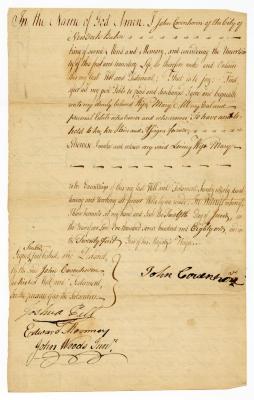 In the Name of God Amen. I John Coventrom of the City of
New York Baker
being of sound Mind and Memory, and considering the Uncertainty
of this frail and transitory Life do therefore make and Ordain
this my last Will and Testament; That is to say; First
after all my just Debts be paid and discharged I give and bequeath
unto my dearly beloved Wife Mary all my Real and
personal Estate whatsoever and wheresoever To have and to
hold to her, her Heirs and Assigns forever
I make and ordain my said Loving Wife Mary
Executrix of this my last Will and Testament, hereby revoking
and making void all former Wills by me made. In Witness whereof
I have hereunto set my hand and Seal the Twelfth Day of
in the Year of our Lord One thousand seven hundred and Eighty one in
the Twenty first Year of his Majesty's Reign
Sealed
Signed published and Declared
by the said John
as his last Will and Testament,
in the presence of us the Subscribers
John Coventrom
Joshua Gell
Edward Moonney
John Woods Junr.